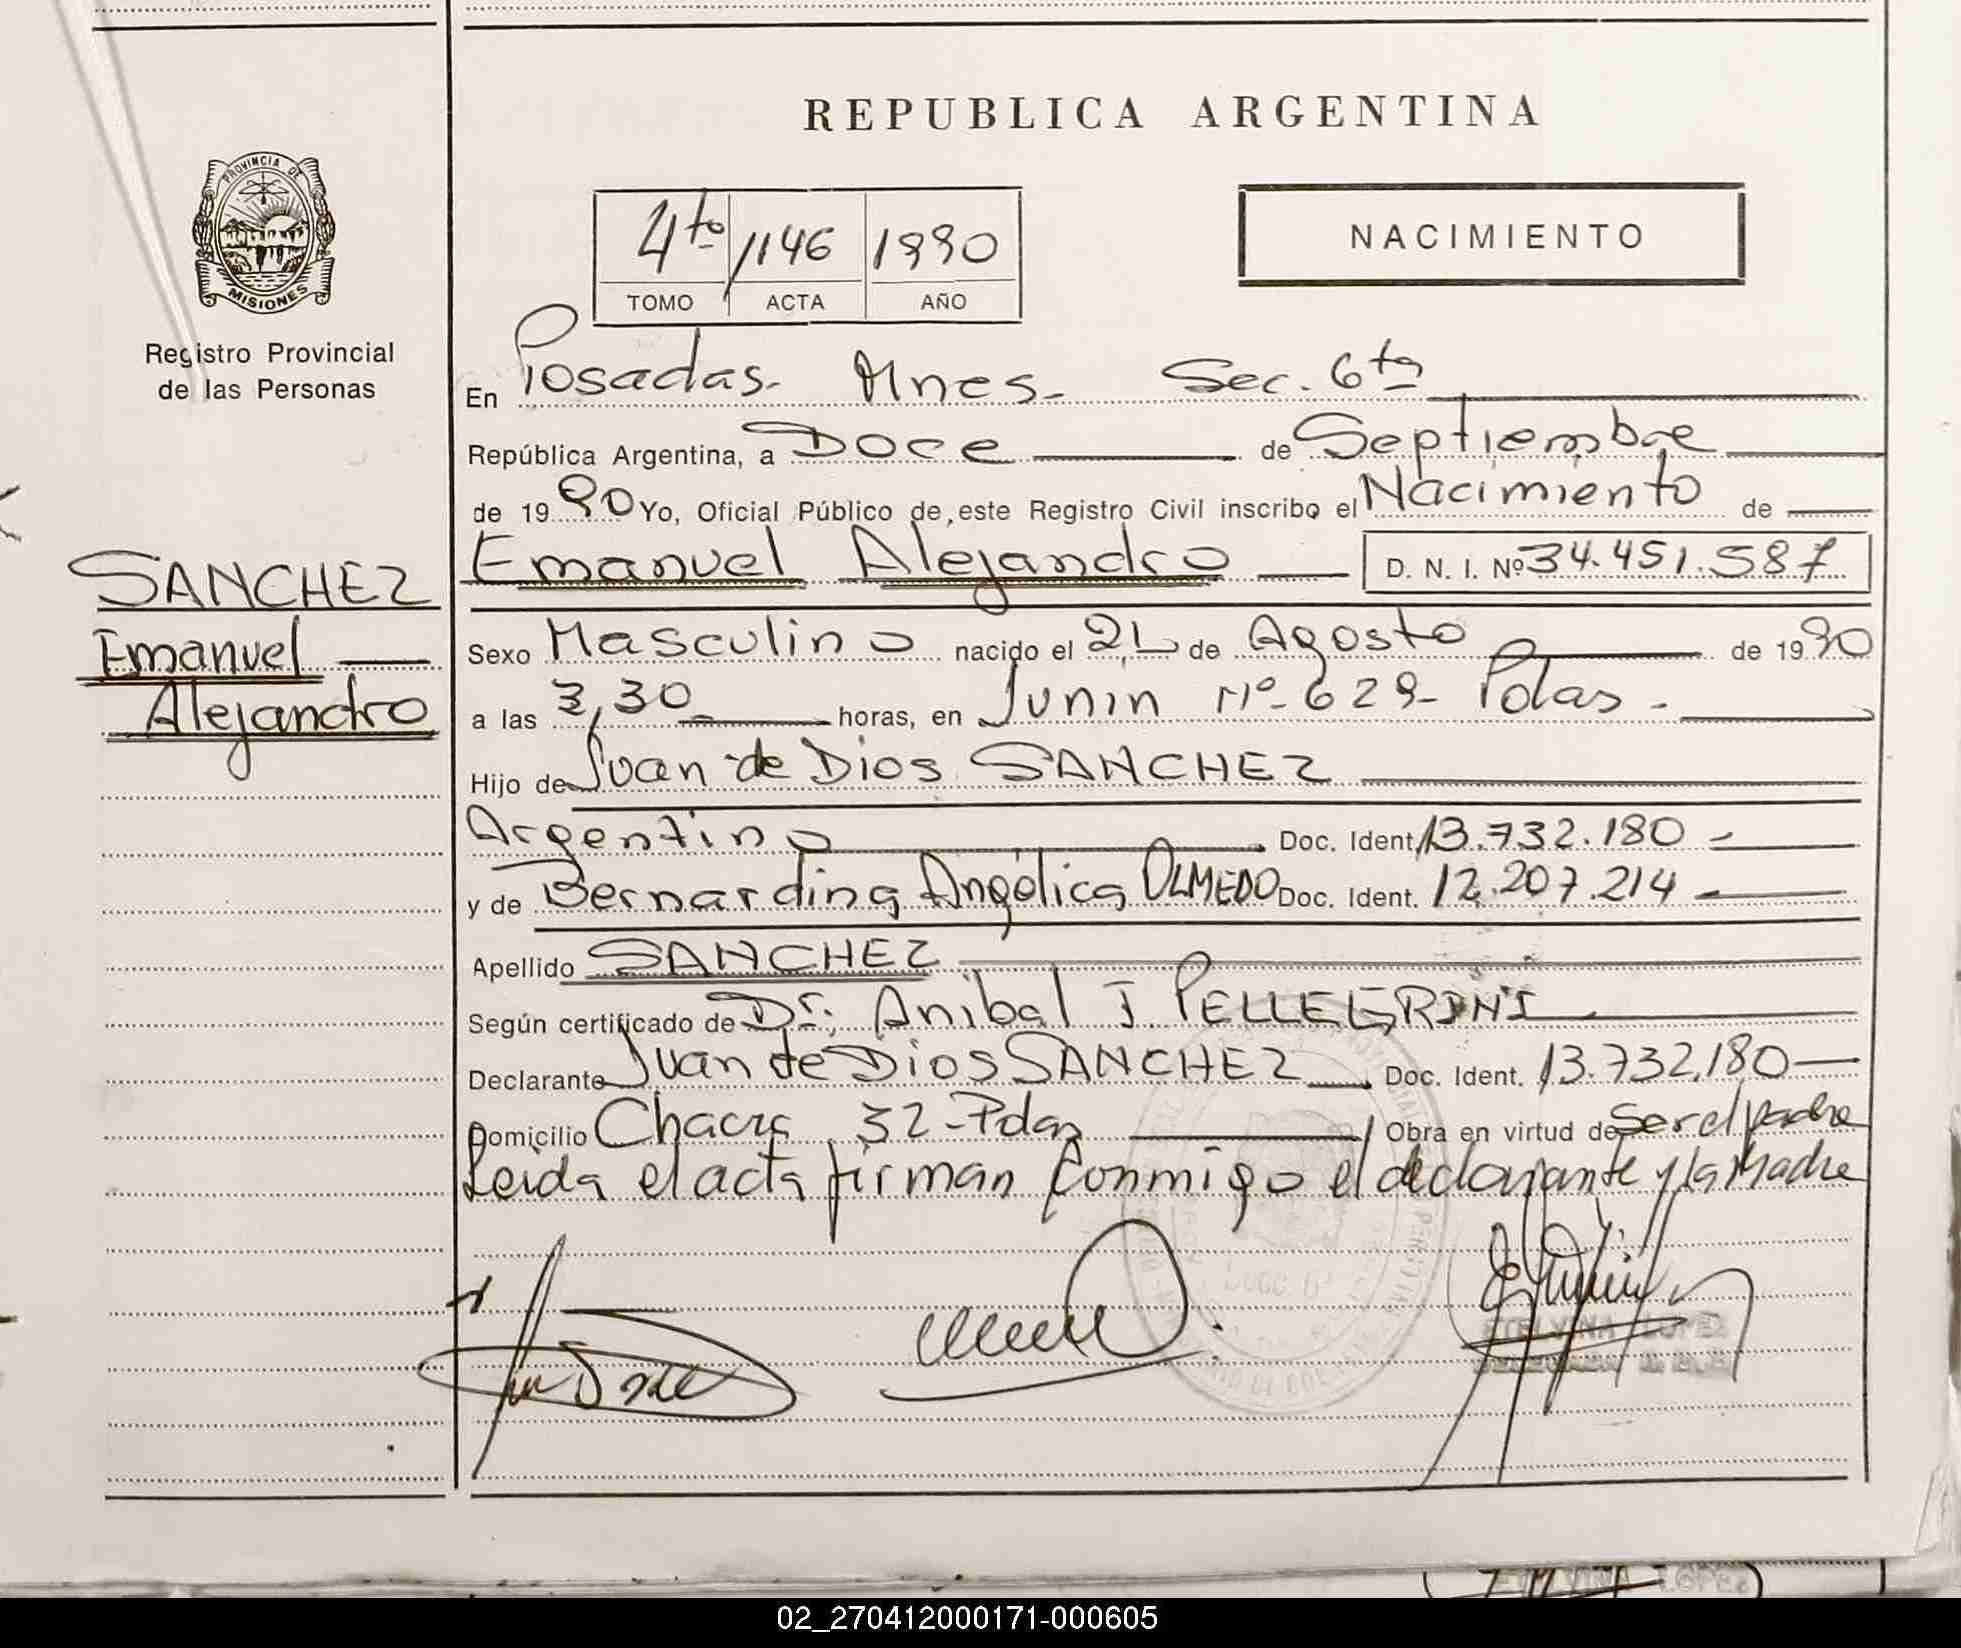 REPUBLICA ARGENTINA
PROVINCIA DE
MISIONES
Registro Provincial
de las Personas
4to 1146 1990
TOMO ACTA AÑO
NACIMIENTO
En Posadas- Mnes- Sec. 6ta
República Argentina, a Doce de Septiembre
de 1990 Yo, Oficial Público de este Registro Civil inscribo el Nacimiento de
Emanuel Alejandro D. N. I. Nº 34.451.587
SANCHEZ
Emanuel
Alejandro
Sexo Masculino nacido el 21 de Agosto de 1990
a las 3,30 horas, en Junin Nº 629- Pdas-
Hijo de Juan de Dios SANCHEZ
Argentino Doc. Ident. 13.732.180-
y de Bernardina Angélica OLMEDO Doc. Ident. 12.207.214-
Apellido SANCHEZ
Según certificado de Dr. Anibal J. PELLEGRINI
Declarante Juan de Dios SANCHEZ Doc. Ident. 13.732.180
Domicilio Chacra 32-Pdas Obra en virtud de ser el padre
Leida el acta firman conmigo el declarante y la madre
02_270412000171-000605